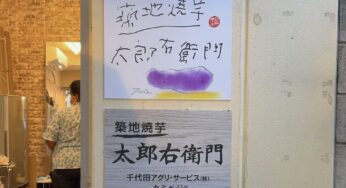 築地焼芋
太郎右衛門
築地焼芋
太郎右衛門
千代田アグリ・サービス(株)